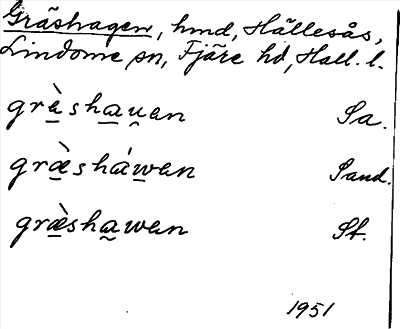 Gräshagen, hmd, Hällesås,
Lindome sn, Fjäre hd, Hall. l.
grè̱sha̱u̯en Sa.
græ̱̀sháw̱en Sand.
græ̱̀sha̰wen St.
1951